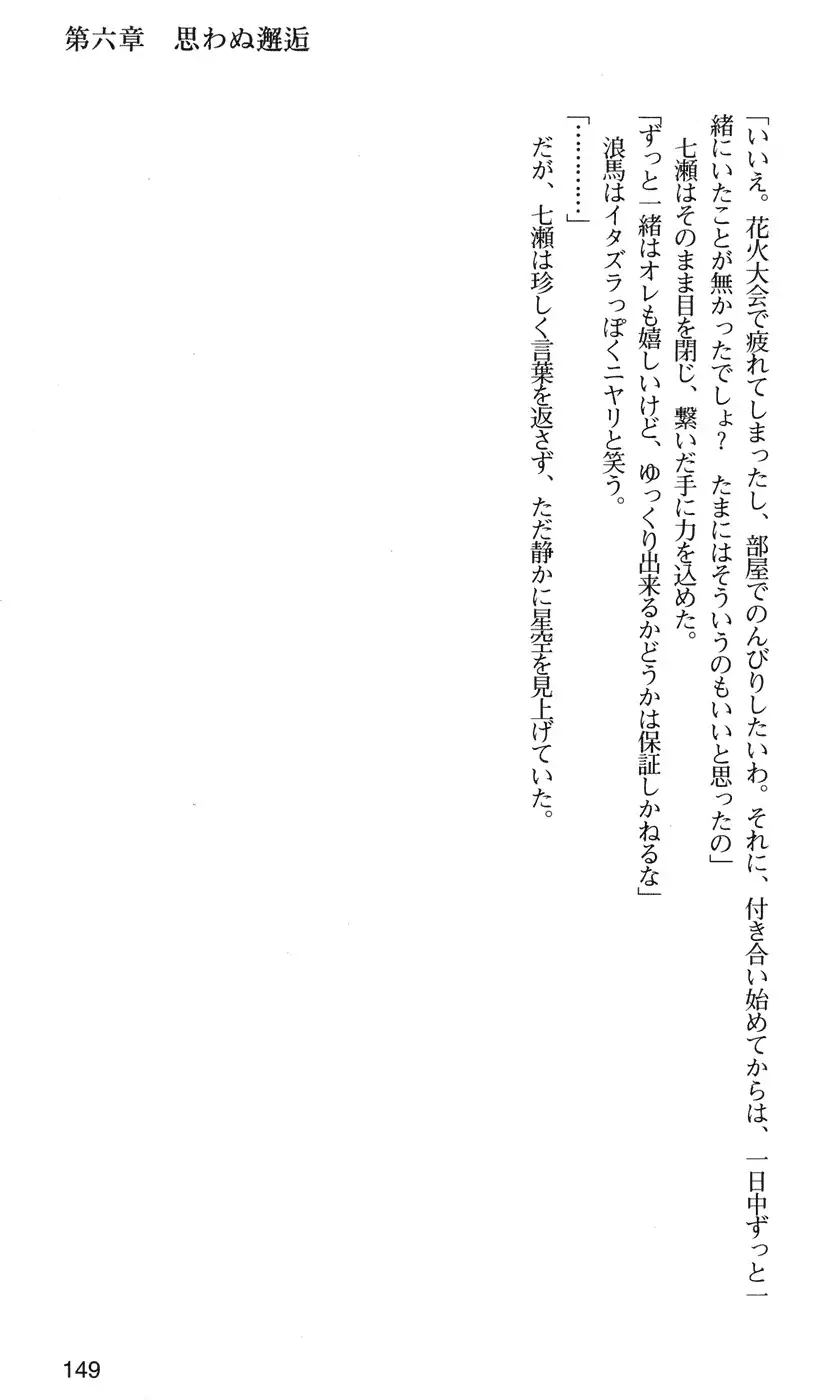 第六章　思わぬ邂逅
「いいえ。花火大会で疲れてしまったし、部屋でのんびりしたいわ。それに、付き合い始めてからは、一日中ずっと一
緒にいたことが無かったでしょ？　たまにはそういうのもいいと思ったの」
　七瀬はそのまま目を閉じ、繋いだ手に力を込めた。
「ずっと一緒はオレも嬉しいけど、ゆっくり出来るかどうかは保証しかねるな」
　浪馬はイタズラっぽくニヤリと笑う。
「…………」
　だが、七瀬は珍しく言葉を返さず、ただ静かに星空を見上げていた。
149